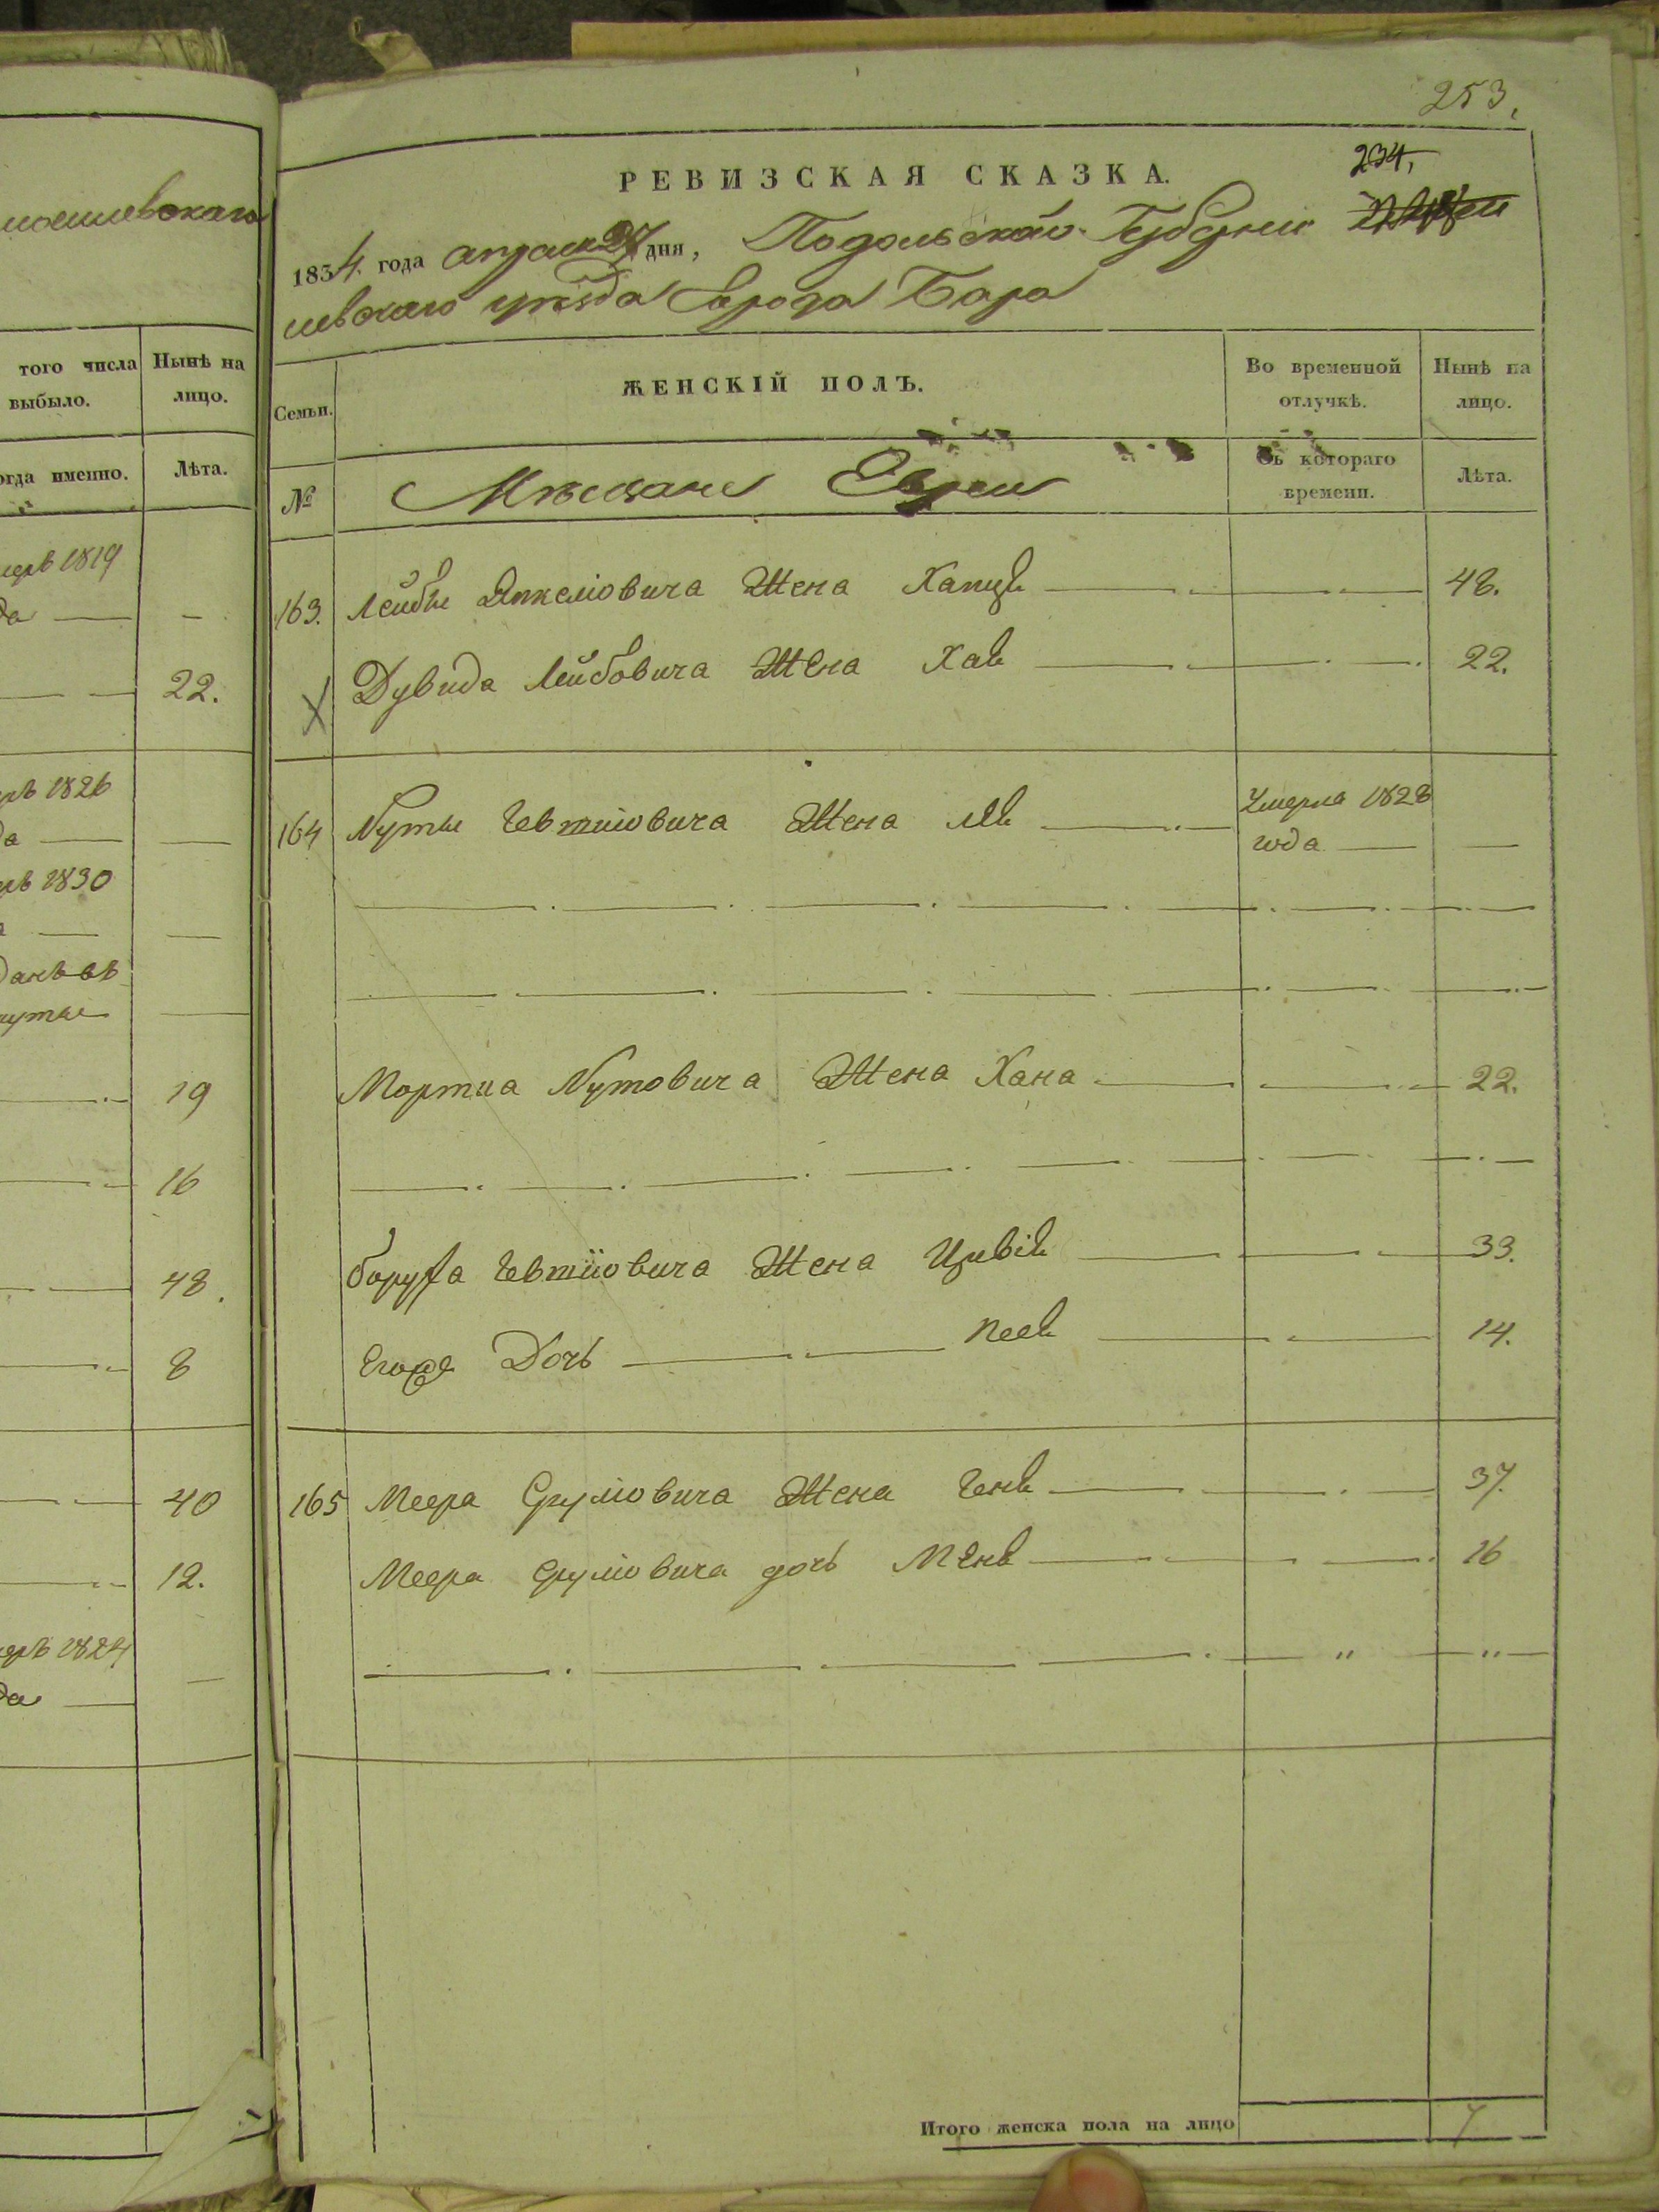 мошевскаго
того числа
выбыло.
Нынѣ на
лицо.
огда именно.
Лѣта.
1819
22.
1826
1830
19
16
48.
8
40
12.
1824
253.
РЕВИЗСКАЯ СКАЗКА.
234,
1834 года апреля 27 дня, Подольской Губернии
уезда города Бара
Семьи.
ЖЕНСКІЙ ПОЛЪ.
Во временной
отлучкѣ.
Нынѣ на
лицо.
№
Мѣщане Евреи
Съ котораго
времени.
Лѣта.
163. Лейбы Янкелiовича Жена 48.
Дувида Лейбовича Жена Хая 22.
164 Нуты Жена Умерла 1828
года
Нутовича Жена Хана 22.
Боруха Жена Цивiя 33.
Дочь 14.
165 Меера Срулiовича Жена Геня 37.
Меера Срулiовича дочь 16
Итого женска пола на лицо 7